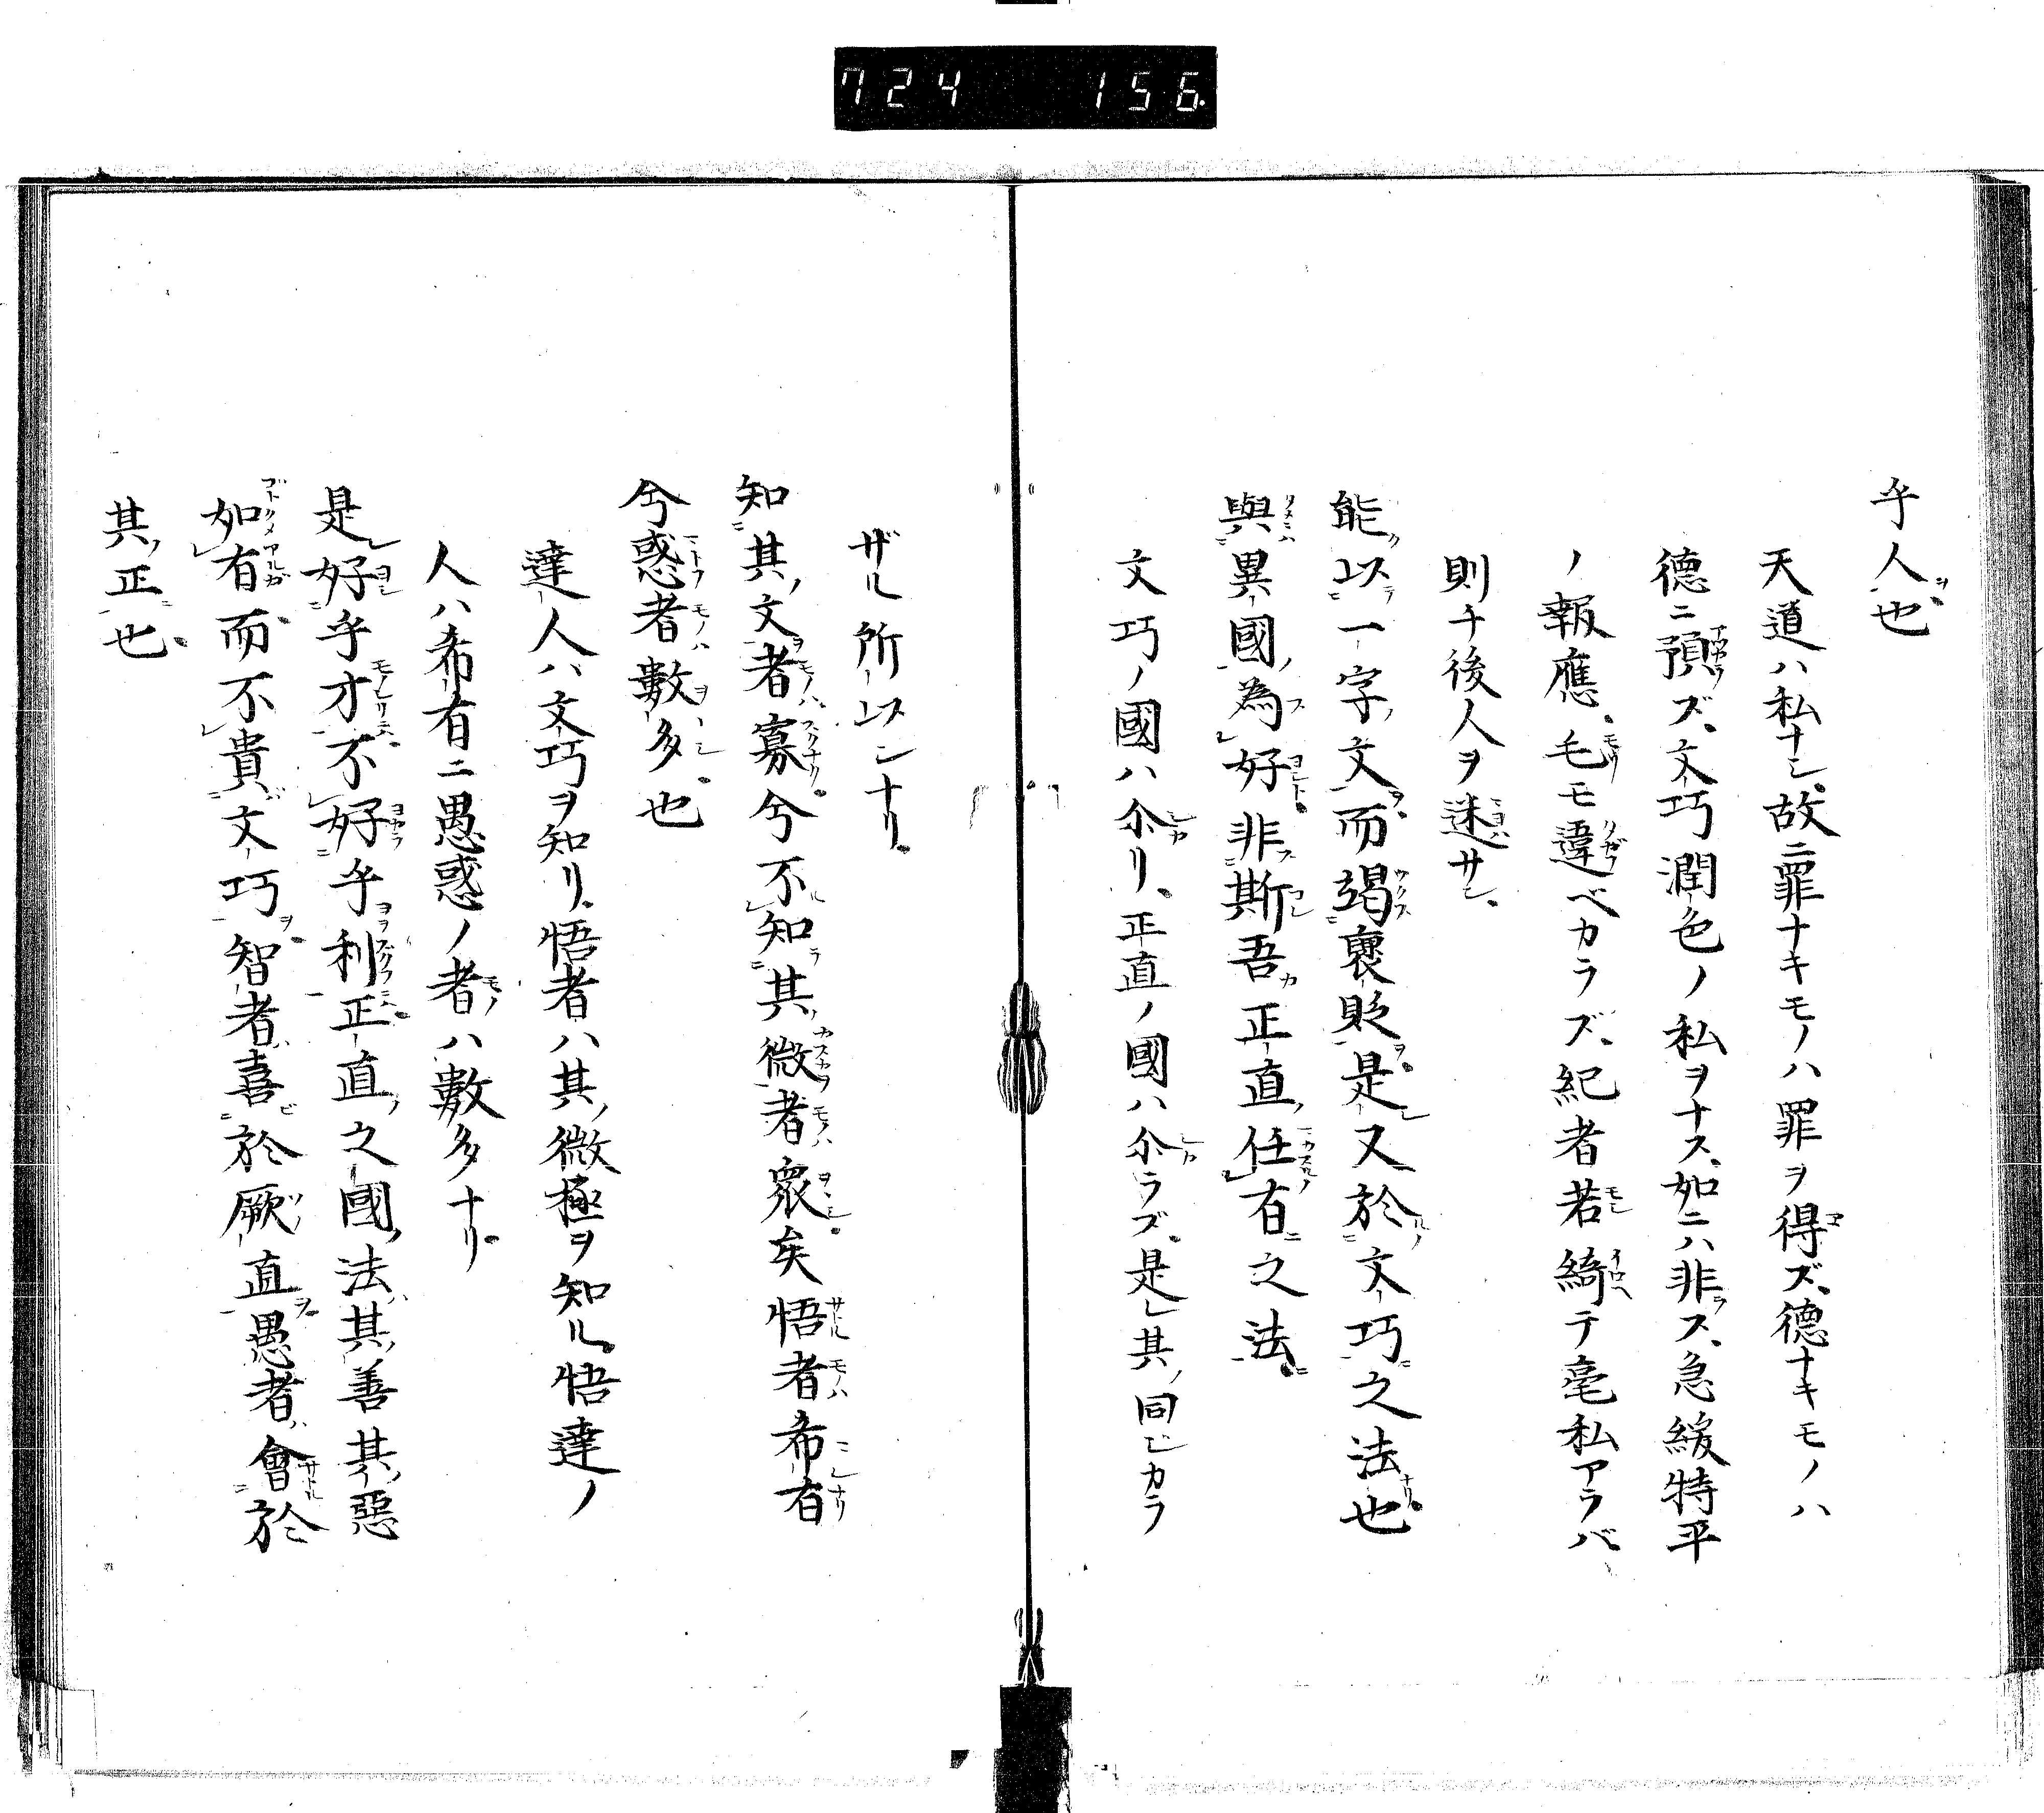 724 156
乎人也
天道ハ私ナシ故ニ罪ナキモノハ罪ヲ得ズ德ナキモノハ
德ニ預ズ文巧潤色ノ私ヲナス如ニハ非ス急緩特平
ノ報應毛モ違ベカラズ紀者若綺テ毫私アラバ
則チ後人ヲ迷サン
能以一字文而竭褒貶是又於文巧之法也
與異國為好非斯吾正直任有之法
文巧ノ國ハ尒リ正直ノ國ハ尒ラズ是其同ジカラ
ザル所以ンナリ
知其文者寡兮不知其微者衆矣悟者希有
兮惑者數多也
達人ハ文巧ヲ知リ悟者ハ其微極ヲ知ル悟達ノ
人ハ希有ニ愚惑ノ者ハ數多ナリ
是好乎才不好乎利正直之國法其善其惡
如有而不貴文巧智者喜於厥直愚者會於
其正也